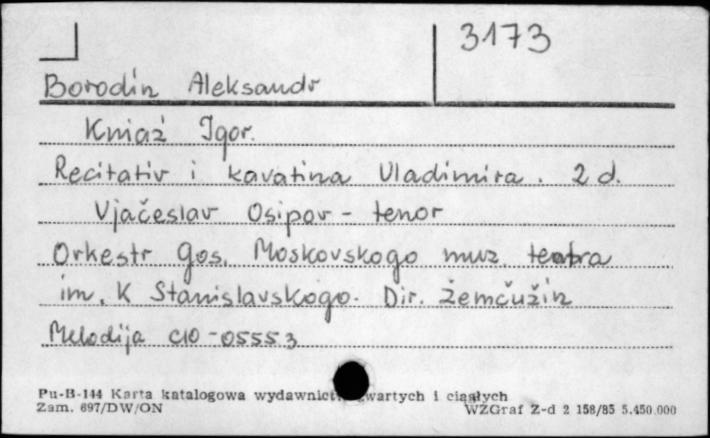 3173
Borodin Aleksandr
Kniaź Igor.
Recitativ i kavatina Vladimira. 2 d.
Vjačeslav Osipov - tenor
Orkestr Gos. Moskovskogo muz. teatra
im. K Stanislavskogo. Dir. Žemčužin
Melodija C10-05553
Pu-B-144 Karta katalogowa wydawnictw zwartych i ciągłych
Zam. 697/DW/ON WZGraf Z-d 2 158/85 5.450.000